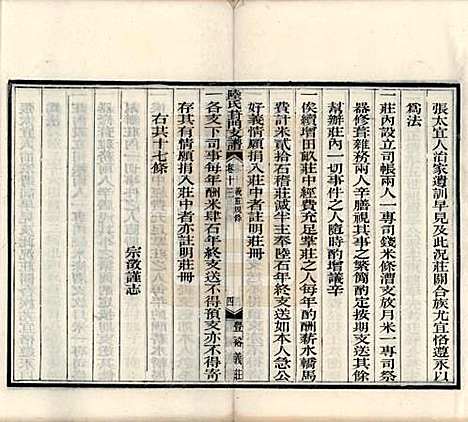 張太宜人治家遵訓早見及此況莊關合族尤宜恪遵永以
爲法
一莊內設立司帳兩人一專司錢米條漕支放月米一專司祭
器修葺雜務兩人辛膳視其事之繁簡酌定按期支送其餘
幫辦莊內一切事件之人隨時酌增議辛
一俟續增田畝莊中經費充足掌莊之人每年酌酬薪水轎馬
費計米貳拾石稽莊減半主奉陸石年終支送如本人急公
好義情願捐入莊中者註明莊冊
陸氏葑門支譜
卷十
義莊規條
四
豐裕義莊
一各支下司事每年酬米肆石年終支送不得預支亦不得寄
存其有情願捐入莊中者亦註明莊冊
右共十七條
宗澂謹志